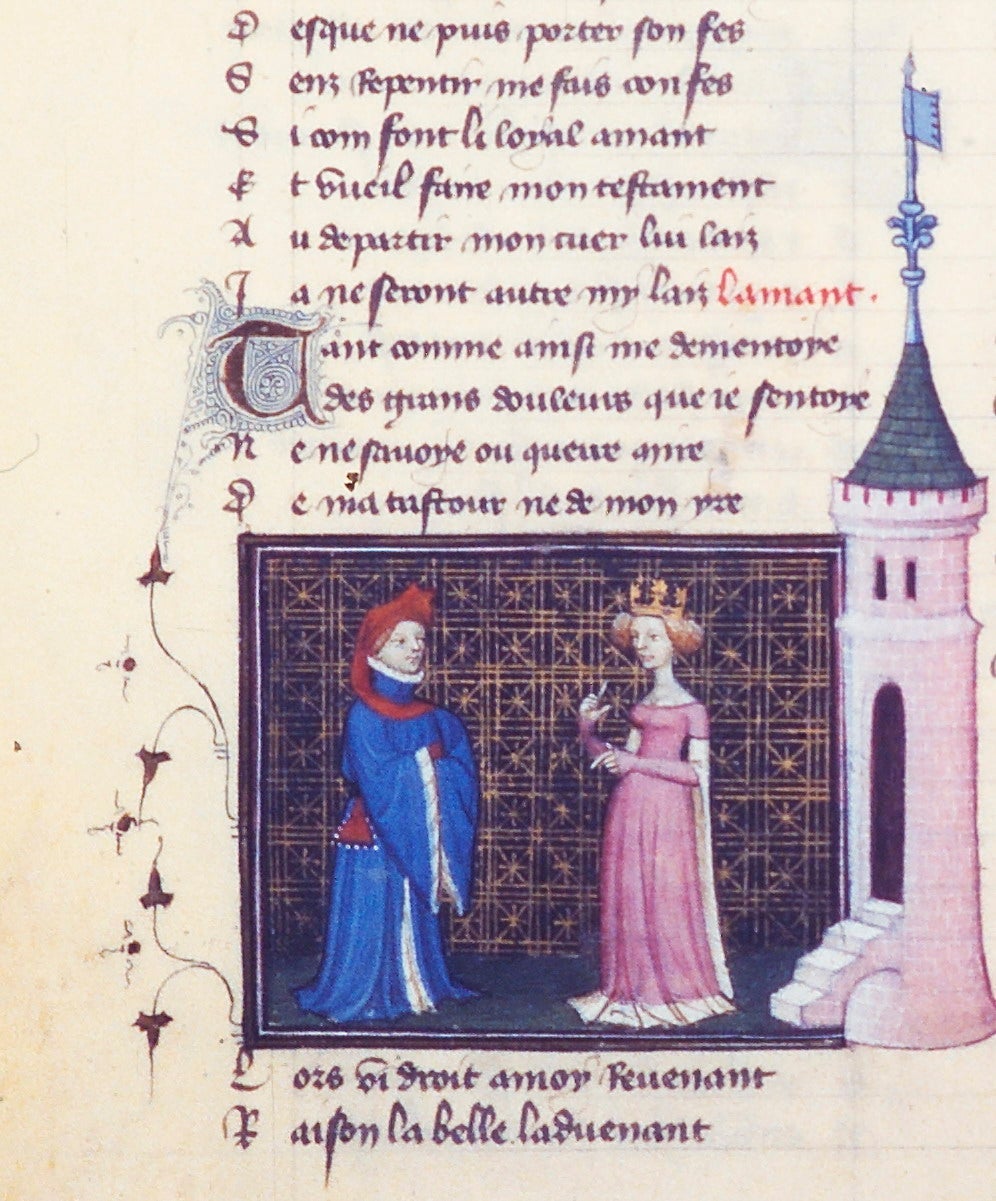 D esque ne puis porter son fes
S enz Repentir me fais confes
S i com font li loyal amant
E t vueil faire mon testament
A u departir mon cuer lui laiz
J a ne seront autre my laiz lamant.
Tant comme ainsi me dementoye
des grans douleurs que ie sentoye
N e ne savoye ou querre mire
D e ma tristour ne de mon yre
L ors vi droit a moy Revenant
R aison la belle ladvenant